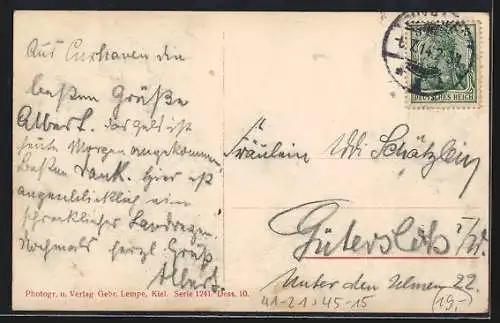 Aus Cuxhaven die
besten Grüße
Albert. das Geld ist
heute Morgen angekommen
besten Dank. Hier ist
augenblicklich ein
schrecklicher Landregen.
Nochmals herzl. Gruß
Albert.
DEUTSCHES REICH
Fräulein Schätzlein
Gütersloh i/W.
Unter den Ulmen 22.
(19,-)
41-21:45-15
Photogr. u. Verlag Gebr. Lempe, Kiel. Serie 1241. Dess. 10.